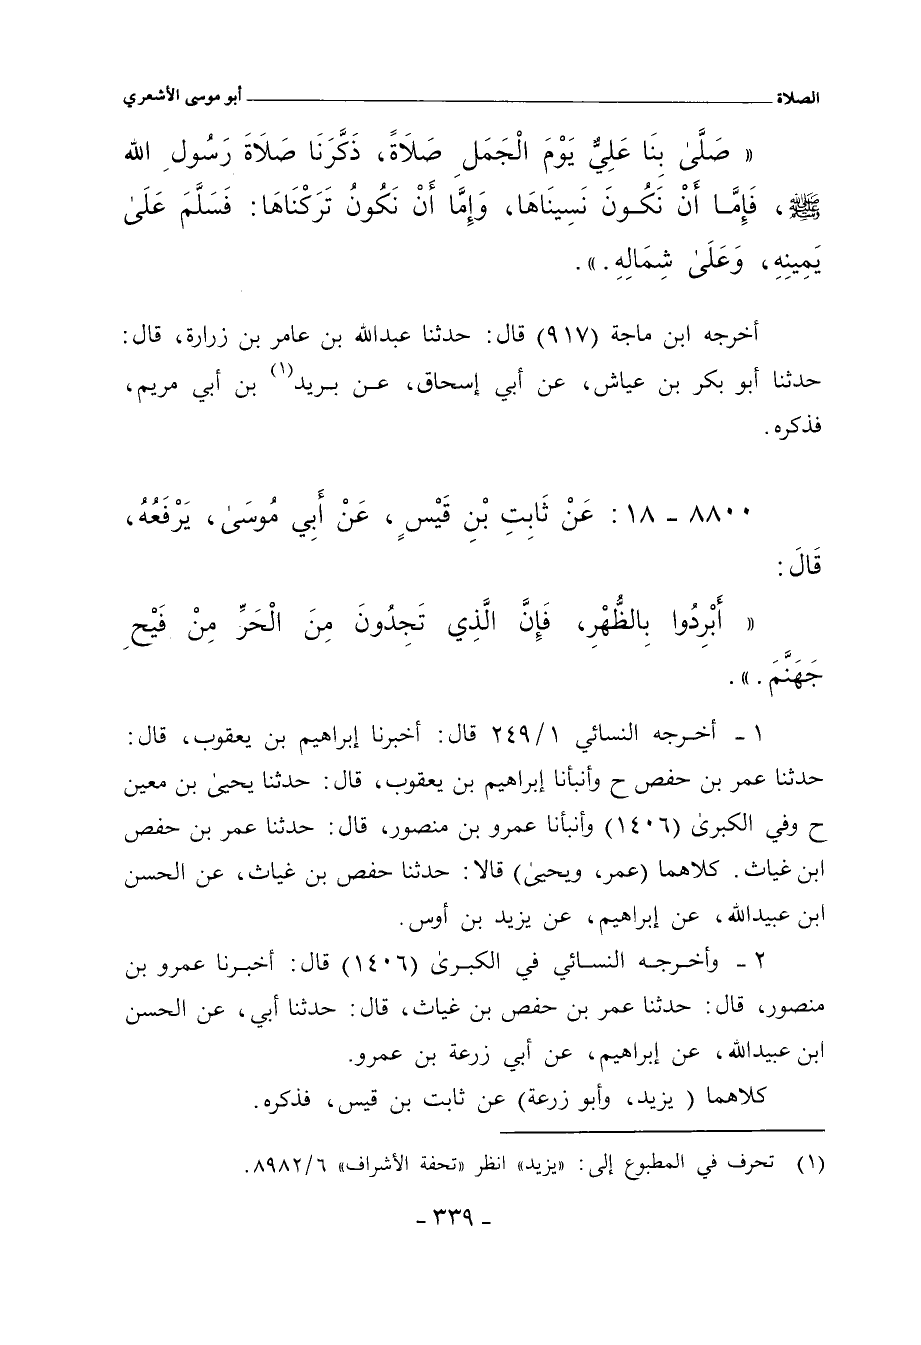 الصلاة ــــــــــــ أبو موسى الأشعري
« صَلَّىٰ بِنَا عَلِيٌّ يَوْمَ الْجَمَلِ صَلَاةً، ذَكَّرَنَا صَلَاةَ رَسُولِ الله
ﷺ، فَإِمَّا أَنْ نَكُونَ نَسِينَاهَا، وَإِمَّا أَنْ نَكُونُ تَرَكْنَاهَا: فَسَلَّمَ عَلَىٰ
يَمِينِهِ، وَعَلَىٰ شِمَالِهِ.».
أخرجه ابن ماجة (٩١٧) قال: حدثنا عبدالله بن عامر بن زرارة، قال:
حدثنا أبو بكر بن عياش، عن أبي إسحاق، عن بريد(١) بن أبي مريم،
فذكره.
٨٨٠٠ - ١٨: عَنْ ثَابِتِ بْنِ قَيْسٍ، عَنْ أَبِي مُوسَىٰ، يَرْفَعُهُ،
قَالَ:
« أَبْرِدُوا بِالظُّهْرِ، فَإِنَّ الَّذِي تَجِدُونَ مِنَ الْحَرِّ مِنْ فَيْحِ
جَهَنَّمَ.».
١ - أخرجه النسائي ٢٤٩/١ قال: أخبرنا إبراهيم بن يعقوب، قال:
حدثنا عمر بن حفص ح وأنبأنا إبراهيم بن يعقوب، قال: حدثنا يحيىٰ بن معين
ح وفي الكبرىٰ (١٤٠٦) وأنبأنا عمرو بن منصور، قال: حدثنا عمر بن حفص
ابن غياث. كلاهما (عمر، ويحيىٰ) قالا: حدثنا حفص بن غياث، عن الحسن
ابن عبيدالله، عن إبراهيم، عن يزيد بن أوس.
٢ - وأخرجه النسائي في الكبرىٰ (١٤٠٦) قال: أخبرنا عمرو بن
منصور، قال: حدثنا عمر بن حفص بن غياث، قال: حدثنا أبي، عن الحسن
ابن عبيدالله، عن إبراهيم، عن أبي زرعة بن عمرو.
كلاهما ( يزيد، وأبو زرعة) عن ثابت بن قيس، فذكره.
(١) تحرف في المطبوع إلى: «يزيد» انظر «تحفة الأشراف» ٨٩٨٢/٦.
- ٣٣٩ -